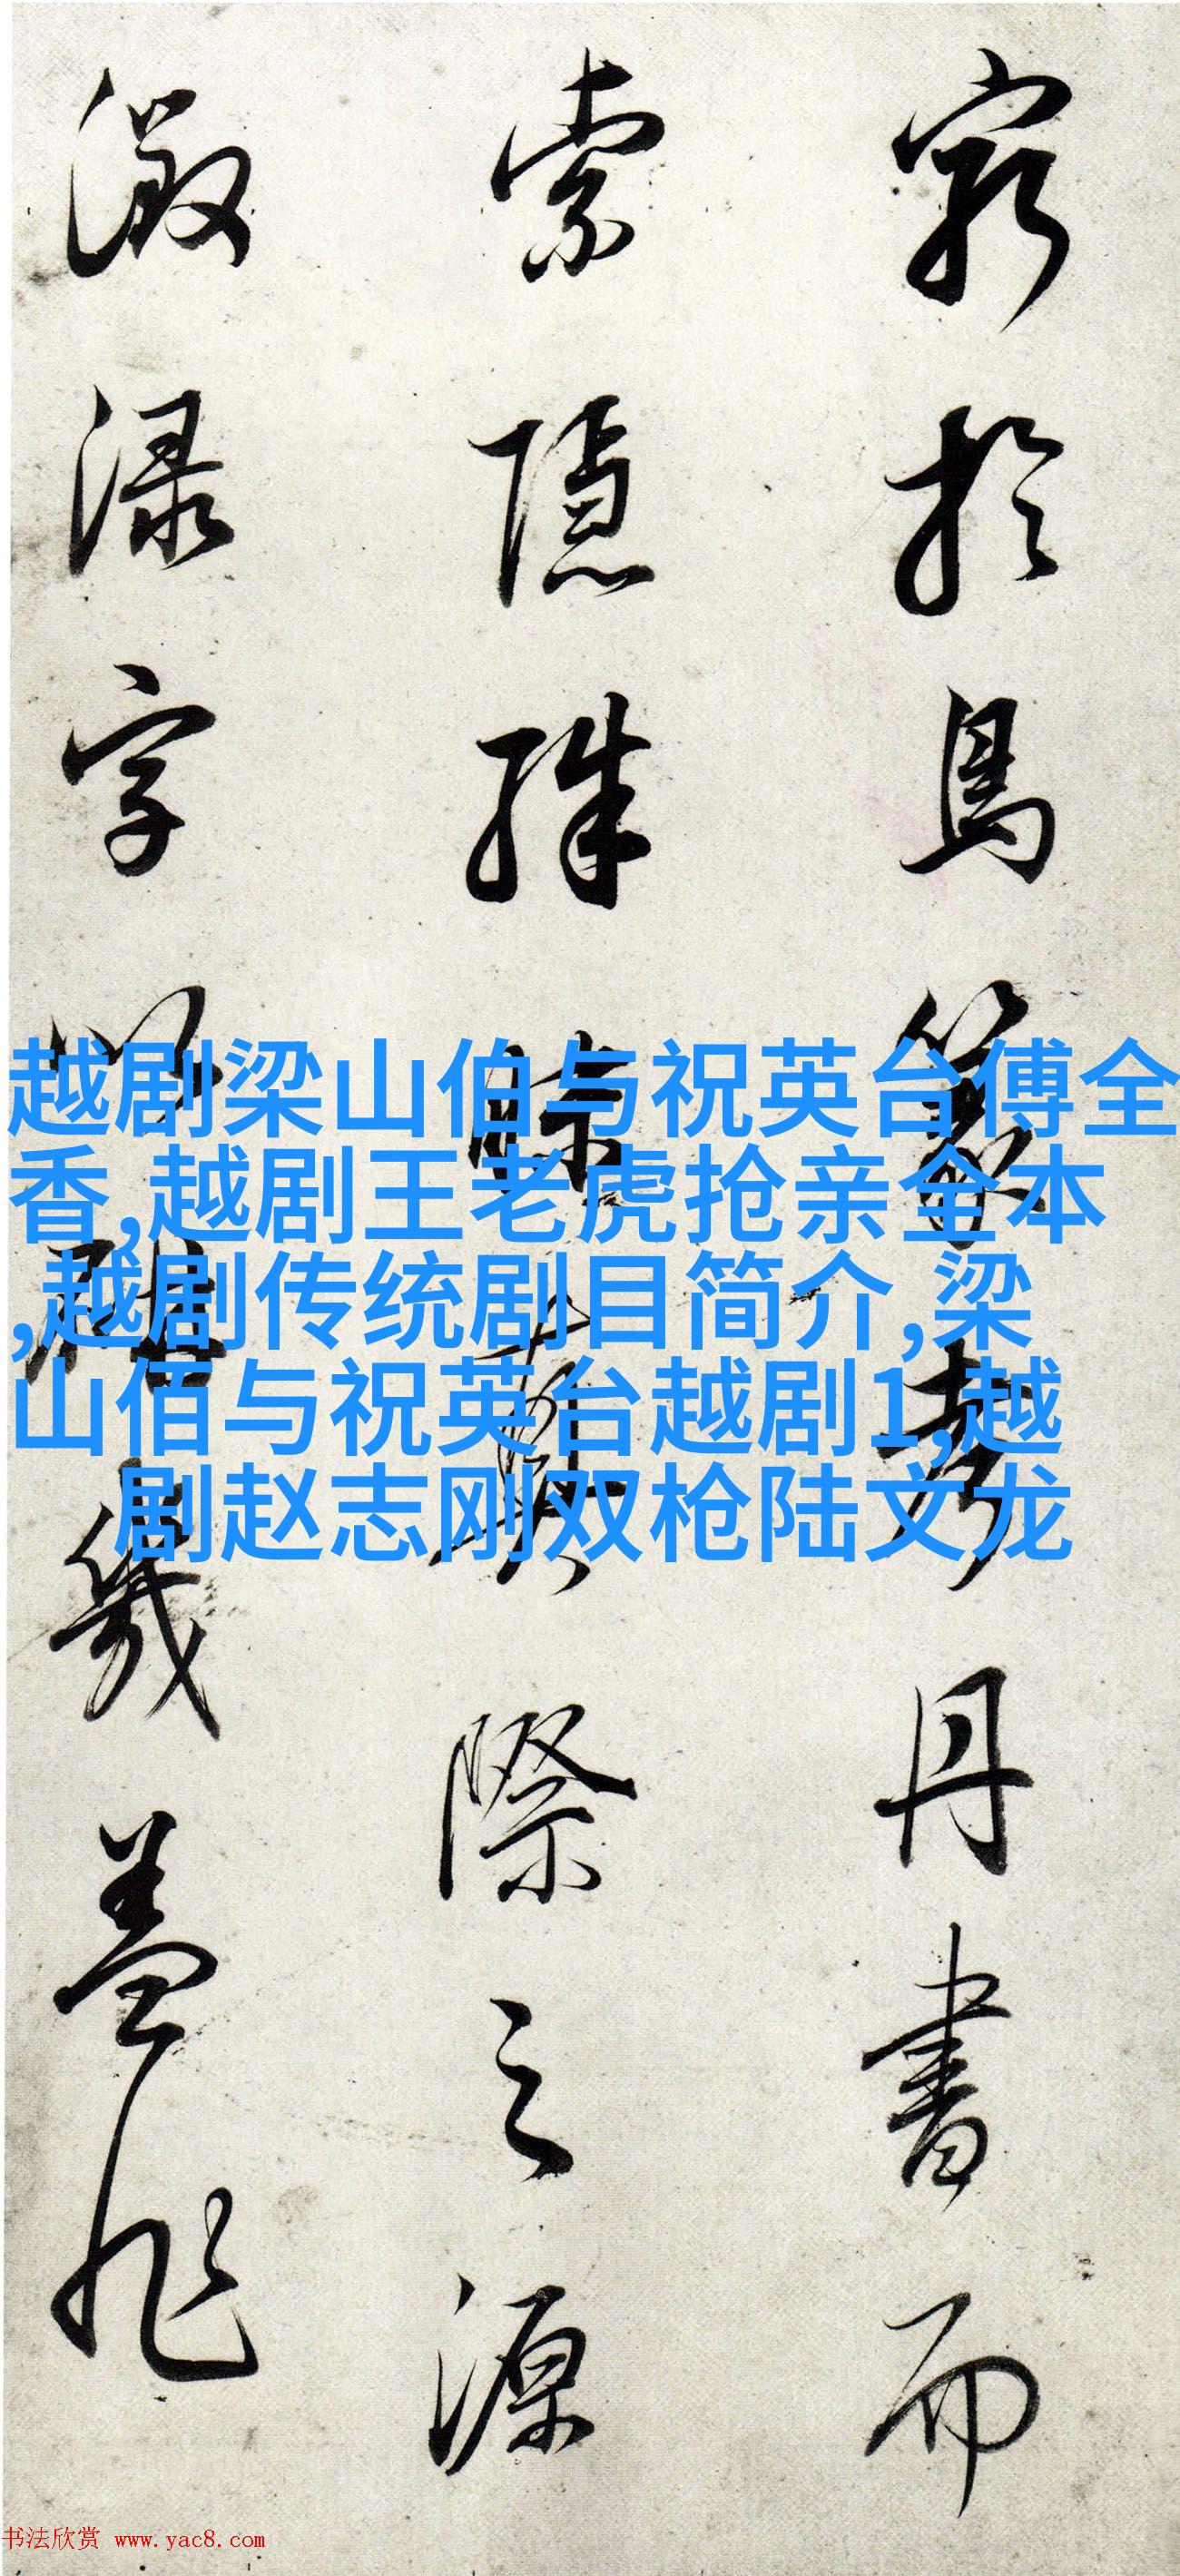 窮於鳥篆考丹書而
索隱殊
際之源
激深字
幾蓋非
越剧梁山伯与祝英台傅全
香,越剧王老虎抢亲全本
,越剧传统剧目简介,梁
山佰与祝英台越剧1,越
剧赵志刚双枪陆文龙
书法欣赏 www.yac8.com